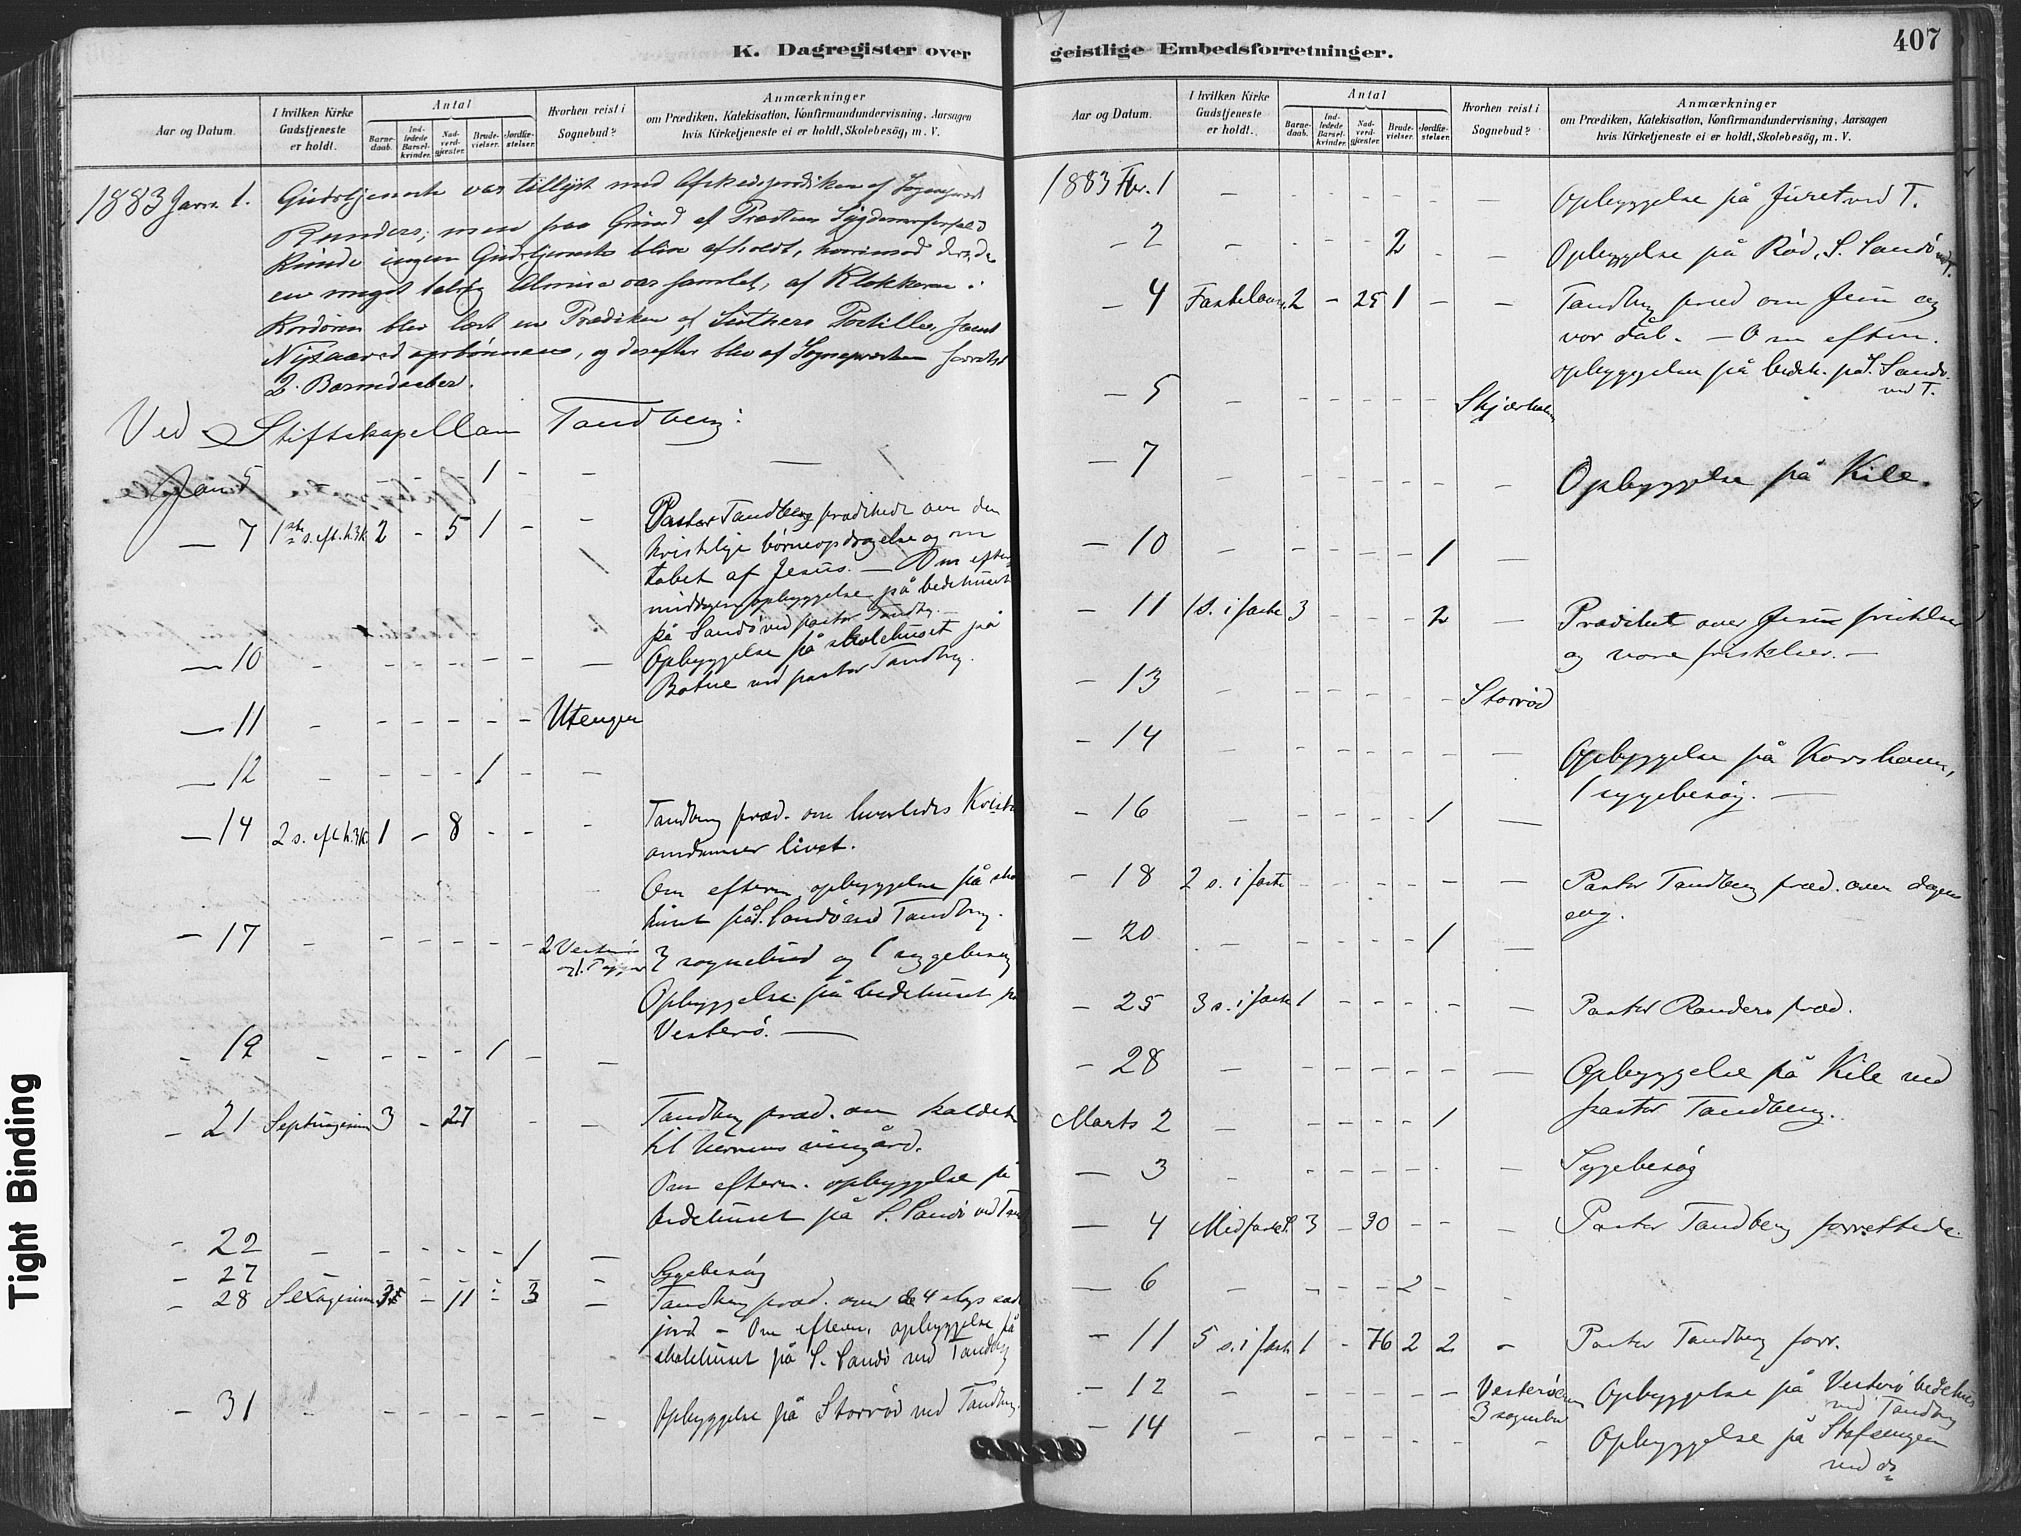 K. Dagregister over
Aar og Datum.
I hvilken Kirke Gudstjeneste er holdt.
Antal
Barnedaab.
Indledede Barselkvinder.
Nadverdgjæster.
Brudevielser.
Jordfæstelser.
Hvorhen reist i Sognebud?
Anmærkninger
om Prædiken, Katekisation, Konfirmandundervisning, Aarsagen
hvis Kirketjeneste ei er holdt, Skolebesög, m. V.
1883 Janr. 1. Gudstjeneste var tillyst med Afskedsprædiken af Sogneprest
Randers; men paa Grund af Præstens Sygdomsforfald
kunde ingen Gudstjeneste blive afholdt, hvorimod der, da
en meget talrig Almue var samlet, af Klokkeren i
Kordören blev læst en Prædiken af Luthers Postille, samt
Nytaars, og derefter blev af Sognepresten forrettet
2 Barnedaaber.
Ved Stiftskapellan Tandberg:
Jan. 5 - - - 1 - -
— 7 1ste s. eft. h. 3 K. 2 - 5 1 - - Pastor Tandberg prædikede om den
kristelige børneopdragelse og om
tabet af Jesus. — Om efter
middagen opbyggelse på bedehuset
på Sandö ved pastor Tandbg.
— 10 - - - - - - - Opbyggelse på skolehuset på
Botne ved pastor Tandbg.
— 11 - - - - - - Utengen
— 12 - - - - 1 - -
— 14 2 s. eft. h. 3 K. 1 - 8 - - - Tandberg præd. om hvorledes Krist
omdanner livet.
Om efterm. opbyggelse på skole
huset på S. Sandö ved Tandbrg.
— 17 - - - - - - 2 Vesterö
og 1 3 sognebud og 1 sygebesøg
Opbyggelse på bedehuset på
Vesterö. —
- 19 - - - - 1 - -
- 21 Septuagesima 3 - 27 - - - Tandberg præd. om kaldet
til Herrens vingård.
Om efterm. opbyggelse på
bedehuset på S. Sandö ved Tan
- 22 - - - - - 1 -
- 27 - - - - - - - Sygebesög
- 28 Sexagesima 3 - 11 - 3 - Tandberg præd. over de 4 slags sæde
jord - Om efterm. opbyggelse på
skolehuset på S. Sandö ved Tandbrg
- 31 - - - - - - - Opbyggelse på Storröd ved Tandbrg.
geistlige Embedsforretninger.
407
Aar og Datum.
I hvilken Kirke Gudstjeneste er holdt.
Antal
Barnedaab.
Indledede Barselkvinder.
Nadverdgjæster.
Brudevielser.
Jordfæstelser.
Hvorhen reist i Sognebud?
Anmærkninger
om Prædiken, Katekisation, Konfirmandundervisning, Aarsagen
hvis Kirketjeneste ei er holdt, Skolebesög, m. V.
1883 Fbr. 1 - - - - - - - Opbyggelse på Juret ved T.
- 2 - - - - 2 - - Opbyggelse på Röd, S. Sandö ved T.
- 4 Fastelavn. 2 - 25 1 - - Tandbrg præd om Jesu og
vor dåb. — Om efterm.
opbyggelse på bedeh. på S. Sandö
ved T.
- 5 - - - - - - Skjærhalen
- 7 - - - - - - - Opbyggelse på Kile.
- 10 - - - - - 1 -
- 11 1 s. i faste 3 - - - 2 - Prædiket over Jesu fristelser
og vore fristelser. —
- 13 - - - - - - Storröd
- 14 - - - - - - - Opbyggelse på Korshavn,
1 sygebesög. —
- 16 - - - - - 1 -
- 18 2 s. i faste - - - - - - Pastor Tandberg præd. over dagens
evg.
- 20 - - - - - 1 -
- 25 3 s. i faste 1 - - - - - Pastor Randers præd.
- 28 - - - - - - - Opbyggelse på Kile ved
pastor Tandberg.
Marts 2 - - - - - 1
- 3 - - - - - - - Sygebesög
- 4 Midfaste S. 3 - 30 - - - Pastor Tandberg forrettede.
- 6 - - - - 2 -
- 11 5 s. i faste 1 - 76 2 2 - Pastor Tandberg forr.
- 12 - - - - - - Vesteröen
3 sognebu Opbyggelse på Vesterö bedehus
ved Tandbrg
- 14 - - - - - - - Opbyggelse på Stafsengen
ved do
Tight Binding